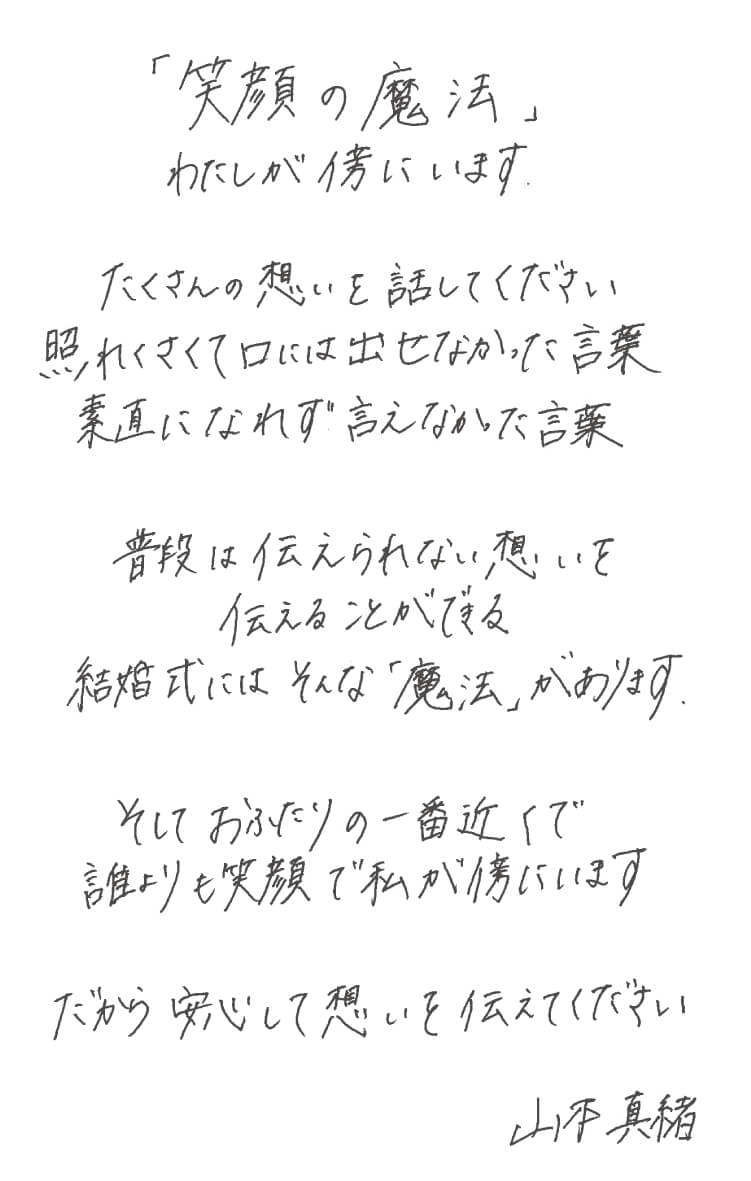 「笑顔の魔法」
わたしが傍にいます.
たくさんの想いを話してください
照れくさくて口には出せなかった言葉
素直になれず言えなかった言葉
普段は伝えられない想いを
伝えることができる
結婚式にはそんな「魔法」があります.
そしておふたりの一番近くで
誰よりも笑顔で私が傍にいます
だから安心して想いを伝えてください
山本真緒